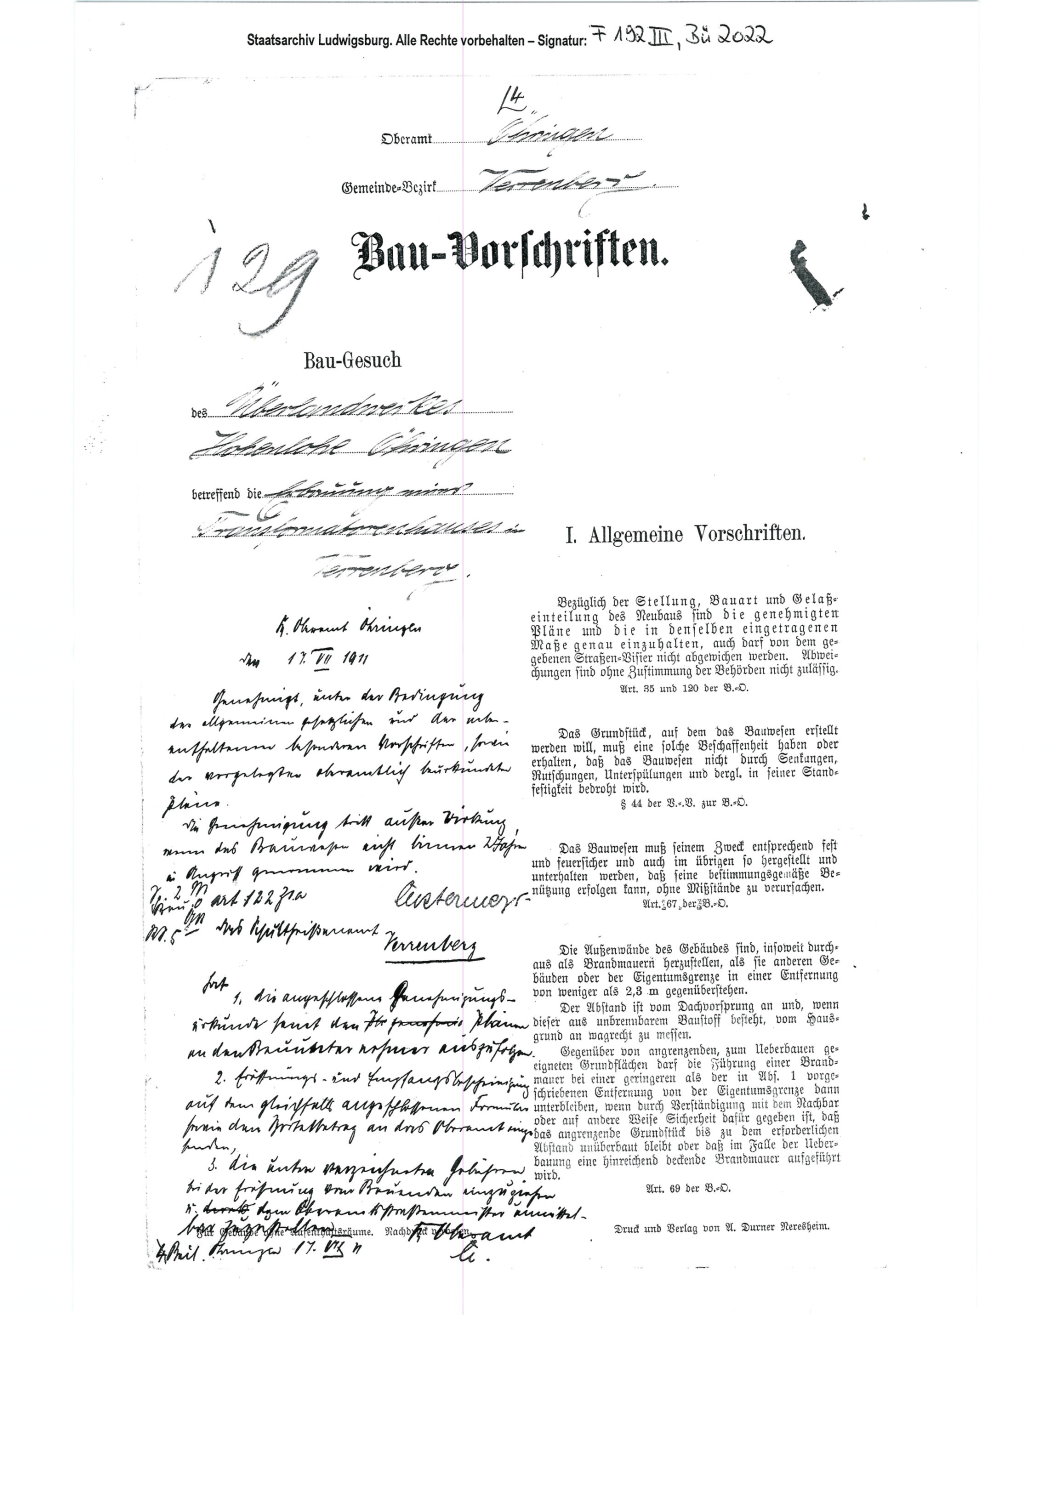 Staatsarchiv Ludwigsburg. Alle Rechte vorbehalten – Signatur: F 192 III, Bü 2022
14
Oberamt Öhringen
Gemeinde-Bezirk Verrenberg.
129
Bau-Vorschriften.
Bau-Gesuch
des Überlandwerkes
Hohenlohe Öhringen
betreffend die Erbauung eines
Transformatorenhauses in
Verrenberg.
K. Oberamt Öhringen
den 17. VII 1911
Genehmigt, unter der Bedingung
der allgemeinen gesetzlichen und der
enthaltenen besonderen Vorschriften, sowie
der vorgelegten oberamtlich beurkundeten
Pläne.
Die Genehmigung tritt außer Wirkung,
wenn das Bauwesen nicht binnen 2 Jahren
in Angriff genommen wird.
art 122 Z 1a
das Schultheißenamt
Verrenberg
hat
1. die angeschlossene Genehmigungs-
urkunde samt den Plänen
an den Bauunternehmer auszufolgen.
2. Eröffnungs- und Empfangsbescheinigung
auf dem gleichfalls angeschlossenen Formular
sowie den Portobetrag an das Oberamt einzu-
senden,
3. die unten verzeichneten Gebühren
bei der Eröffnung vom Bauenden einzuziehen
u. dem Oberamtsstraßenmeister unmittel-
bar zuzustellen.
Für Gebäude ohne Aufenthaltsräume. Nachdruck verboten.
K. Oberamt
4 Beil. Öhringen 17. VII 11
I. Allgemeine Vorschriften.
Bezüglich der Stellung, Bauart und Gelaß-
einteilung des Neubaus sind die genehmigten
Pläne und die in denselben eingetragenen
Maße genau einzuhalten, auch darf von dem ge-
gebenen Straßen-Visier nicht abgewichen werden. Abwei-
chungen sind ohne Zustimmung der Behörden nicht zulässig.
Art. 35 und 120 der B.-O.
Das Grundstück, auf dem das Bauwesen erstellt
werden will, muß eine solche Beschaffenheit haben oder
erhalten, daß das Bauwesen nicht durch Senkungen,
Rutschungen, Unterspülungen und dergl. in seiner Stand-
festigkeit bedroht wird.
§ 44 der V.-V. zur B.-O.
Das Bauwesen muß seinem Zweck entsprechend fest
und feuersicher und auch im übrigen so hergestellt und
unterhalten werden, daß seine bestimmungsgemäße Be-
nützung erfolgen kann, ohne Mißstände zu verursachen.
Art. 67 der B.-O.
Die Außenwände des Gebäudes sind, insoweit durch-
aus als Brandmauern herzustellen, als sie anderen Ge-
bäuden oder der Eigentumsgrenze in einer Entfernung
von weniger als 2,3 m gegenüberstehen.
Der Abstand ist vom Dachvorsprung an und, wenn
dieser aus unbrennbarem Baustoff besteht, vom Haus-
grund an wagrecht zu messen.
Gegenüber von angrenzenden, zum Ueberbauen ge-
eigneten Grundflächen darf die Führung einer Brand-
mauer bei einer geringeren als der in Abs. 1 vorge-
schriebenen Entfernung von der Eigentumsgrenze dann
unterbleiben, wenn durch Verständigung mit dem Nachbar
oder auf andere Weise Sicherheit dafür gegeben ist, daß
das angrenzende Grundstück bis zu dem erforderlichen
Abstand unüberbaut bleibt oder daß im Falle der Ueber-
bauung eine hinreichend deckende Brandmauer aufgeführt
wird.
Art. 69 der B.-O.
Druck und Verlag von A. Durner Neresheim.